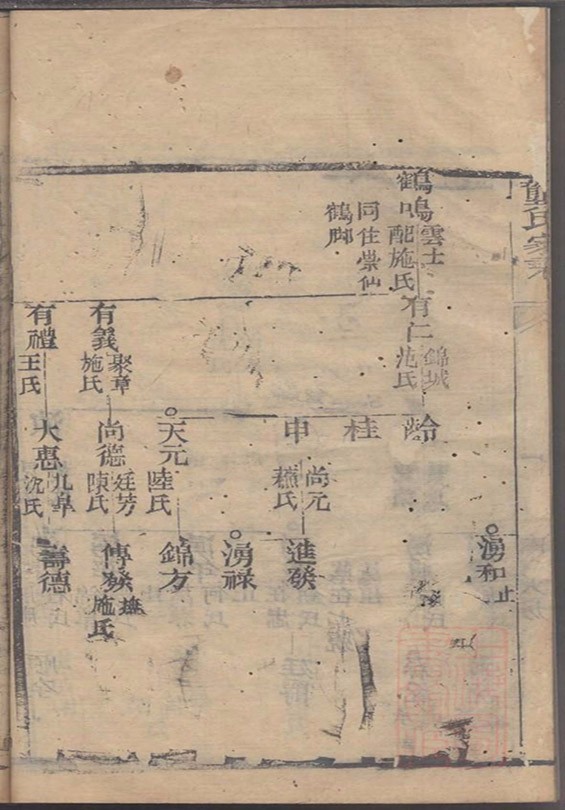 龔氏家
湧和止
鶴鳴
雲士
配施氏
同住崇仙
鶴腳
有仁
錦城
范氏
齡
桂
申
尚元
燕氏
進發
湧祿
天元
陸氏
錦方
有義
聚章
施氏
尚德
廷芳
陳氏
傳發
撫
施氏
有禮
王氏
大惠
九皐
沈氏
壽德